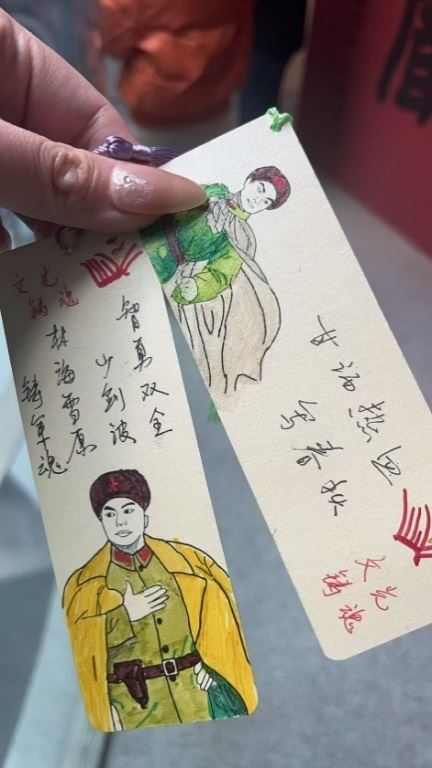 文光
铸魂
智勇双全
少剑波
林海雪原
铸军魂
甘洒热血
写春秋
文光
铸魂